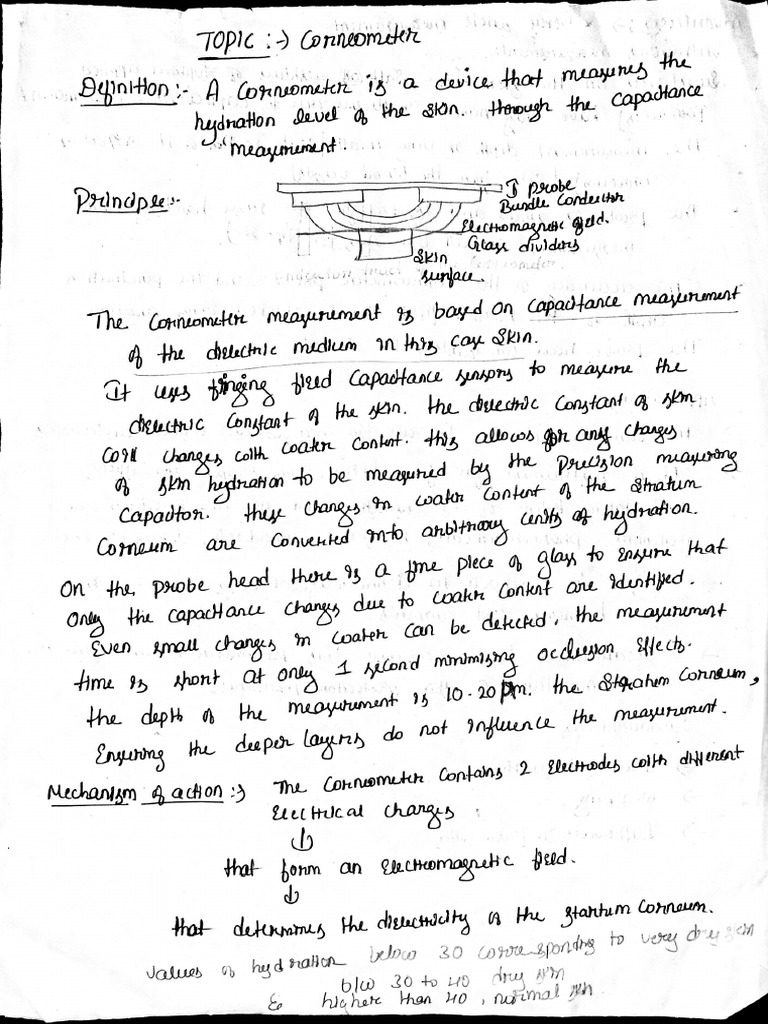 TOPIC :-> Corneometer
Definition :- A Corneometer is a device that measures the
hydration level of the skin. through the capacitance
measurement.
Principle:-
probe
Bundle Conductor
Electromagnetic field.
Glass dividers
Skin
surface
The Corneometer measurement is based on capacitance measurement
of the dielectric medium in this case skin.
It uses fringing field capacitance sensors to measure the
dielectric constant of the skin. the dielectric constant of skin
will changes with water content. this allows for any changes
of skin hydration to be measured by the precision measuring
capacitor. these changes in water content of the Stratum
Corneum are converted into arbitrary units of hydration.
On the probe head there is a fine piece of glass to ensure that
only the capacitance changes due to water content are identified.
Even small changes in water can be detected. the measurement
time is short at only 1 second minimizing occlusion effects.
the depth of the measurement is 10-20 µm. the Stratum Corneum,
Ensuring the deeper layers do not influence the measurement.
Mechanism of action :-> The Corneometer contains 2 Electrodes with different
Electrical charges
↓
that form an Electromagnetic field.
↓
that determines the dielectricity of the startum Corneum.
values of hydration below 30 corresponding to very dry skin
b/w 30 to 40 dry skin
& higher than 40, normal skin.